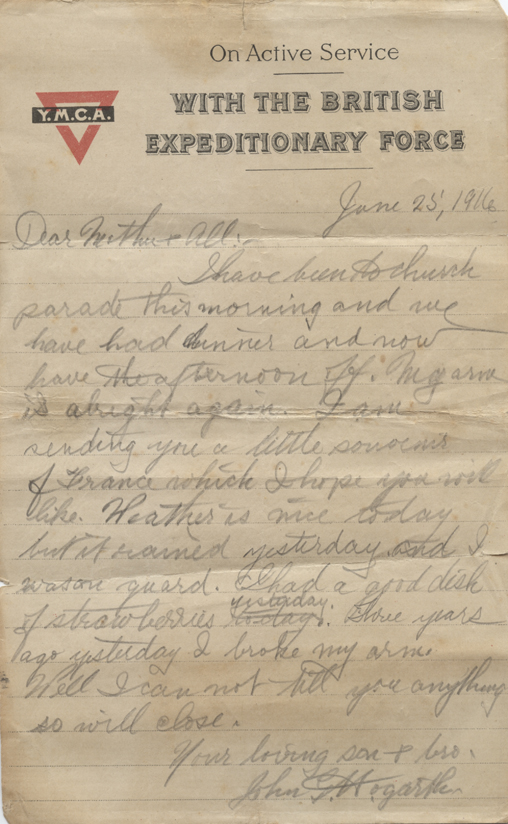 On Active Service
WITH THE BRITISH
EXPEDITIONARY FORCE
Y.M.C.A.
June 25, 1916
Dear Mother & All:-
I have been to church
parade this morning and we
have had dinner and now
have the afternoon off. My arm
is alright again. I am
sending you a little souvenir
of France which I hope you will
like. Weather is nice today
but it rained yesterday and I
was on guard. I had a good dish
yesterday
of strawberries today. Three years
ago yesterday I broke my arm.
Well I can not tell you anything
so will close.
Your loving son & bro.
John G. Hogarth